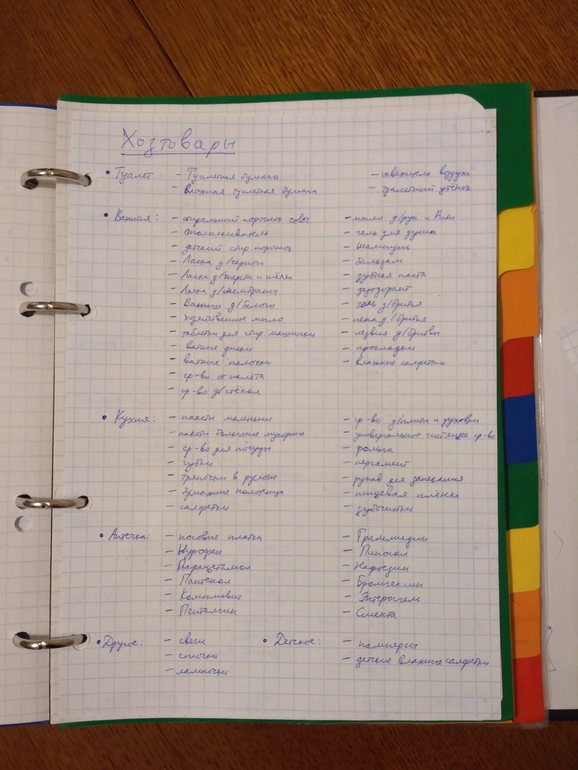 Хозтовары
• Туалет: - Туалетная бумага
- Влажная туалетная бумага
- освежитель воздуха
- туалетный утёнок
• Ванная: - стиральный порошок
- ополаскиватель
- детский стир порошок
- Ласка д/черного
- Ласка д/шерсти и шёлка
- Ласка д/мембраны
- Ваниш д/белого
- хозяйственное мыло
- таблетки для стир машинки
- ватные диски
- ватные палочки
- ср-во от налёта
- ср-во д/стёкол
- мыло д/рук и
- гель для душа
- шампунь
- бальзам
- зубная паста
- дезодорант
- гель д/бритья
- пена д/бритья
- лезвия д/бритвы
- прокладки
- влажные салфетки
• Кухня: - пакеты маленькие
- пакеты большие мусорные
- ср-во для посуды
- губки
- тряпочки в рулоне
- бумажные полотенца
- салфетки
- ср-во д/плиты и духовки
- универсальное чистящее ср-во
- фольга
- пергамент
- рукав для запекания
- пищевая плёнка
- зубочистки
• Аптечка: - носовые платки
- Нурофен
- Парацетамол
- Пантенол
- Компливит
- Пенталгин
- Граммидин
- Пиносол
- Нафтизин
- Бромгексин
- Энтеросгель
- Смекта
• Другие: - свечи
- спички
- лампочки
• Детское: - памперсы
- детские влажные салфетки